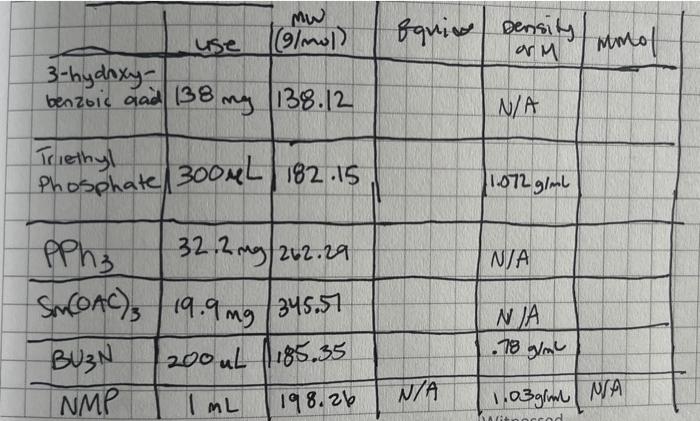 use MW (g/mol) Equiv Density or M MMol
3-hydroxy-benzoic acid 138 mg 138.12 N/A
Triethyl Phosphate 300 uL 182.15 1.072 g/mL
PPh3 32.2 mg 262.29 N/A
Sm(OAC)3 19.9 mg 345.51 N/A
BU3N 200 uL 185.35 .78 g/mL
NMP 1 mL 198.26 N/A 1.03 g/mL N/A
Witnessed